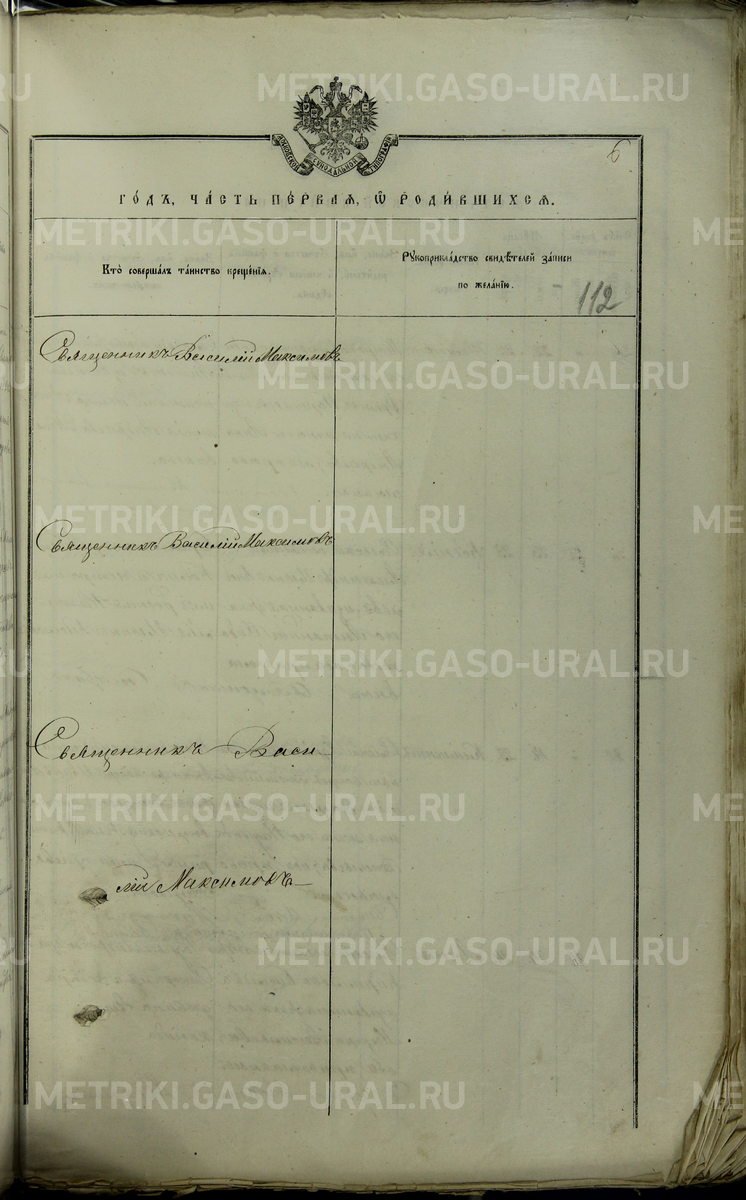 МОСКОВСКОЙ СѴНОДАЛЬНОЙ ТИПОГРАФІИ
6
ГО́ДЪ, ЧА́СТЬ ПЕ́РВАѦ, Ѽ РОДИ́ВШИХСѦ.
Кто̀ соверша́лъ та́инство креще́нїѧ.
Рꙋкоприкла́дство свидѣ́телей за́писи
по жела́нїю.
112
Священникъ Василій Максимовъ
Священникъ Василій Максимовъ
Священникъ Васи
лій Максимовъ
METRIKI.GASO-URAL.RU
METRIKI.GASO-URAL.RU
METRIKI.GASO-URAL.RU
METRIKI.GASO-URAL.RU
METRIKI.GASO-URAL.RU
METRIKI.GASO-URAL.RU
METRIKI.GASO-URAL.RU
METRIKI.GASO-URAL.RU